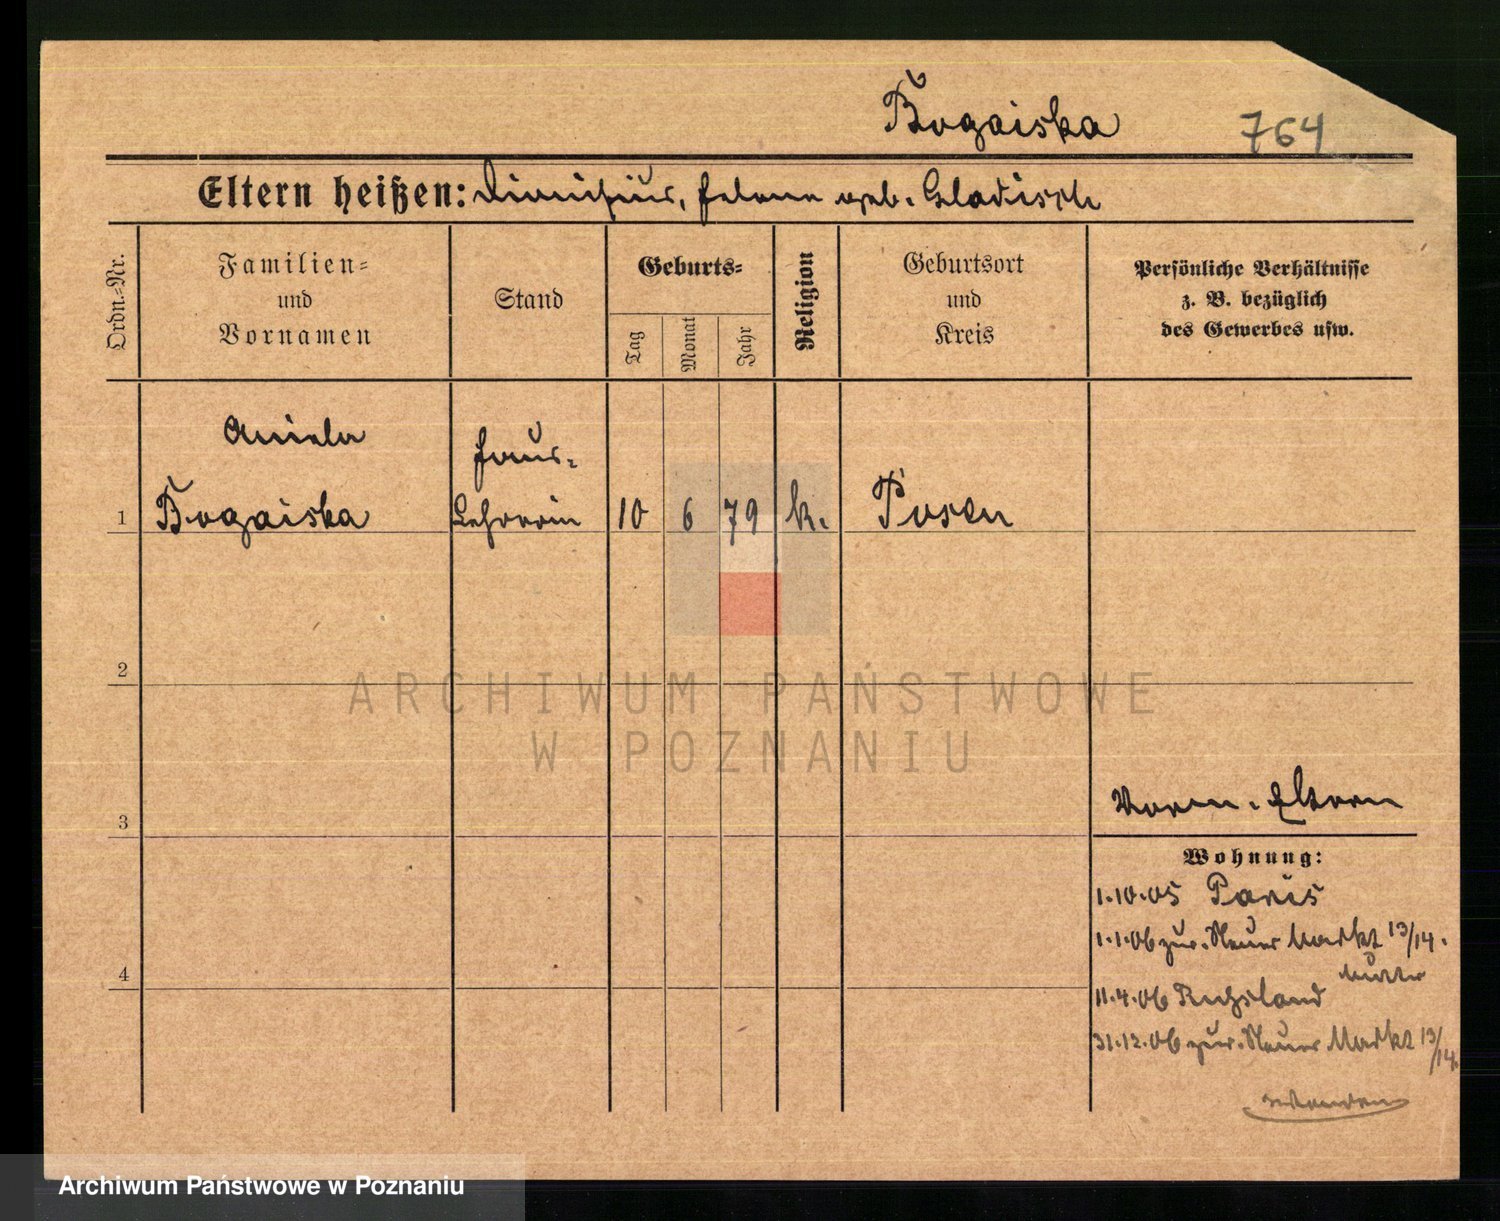 Bogaiska 764
Eltern heißen: Dionisius, Helene geb. Gladisch
Ordn.-Nr.
Familien-
und
Vornamen
Stand
Geburts-
Tag
Monat
Jahr
Religion
Geburtsort
und
Kreis
Persönliche Verhältnisse
z. B. bezüglich
des Gewerbes usw.
Aniela
Haus-
1 Bogaiska Lehrerin 10 6 79 k. Posen
2
ARCHIWUM PAŃSTWOWE
W POZNANIU
3
Eltern
Wohnung:
1.10.05 Paris
1.1.06 zur. Neuer Markt 13/14.
Mutter
4
11.4.06 Rußland
31.12.06 zur. Neuer Markt 13/14.
wenden
Archiwum Państwowe w Poznaniu